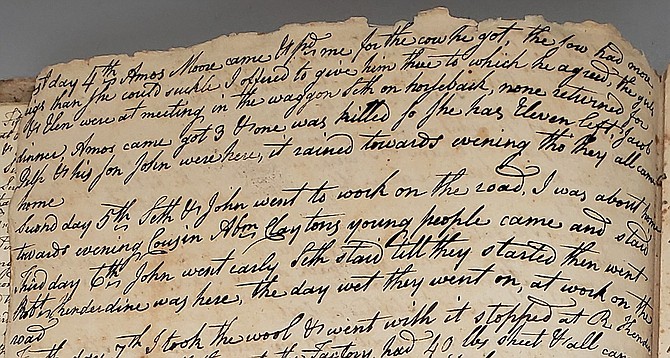 1st day 4th Amos Moore came & pd me for the cow he got, the sow had more
pigs than she could suckle, I offered to give him three to which he agreed, the girls
& Ellen were at meeting in the waggon Seth on horseback, none returned for
dinner, Amos came got 3 & one was killed so she has Eleven left, Jacob
& his son John were here, it rained towards evening tho they all came
home
Second day 5th Seth & John went to work on the road, I was about home
towards evening Cousin Abm Claytons young people came and staid
Third day 6th John went early Seth staid till they started then went
Robt Henderdine was here, the day wet they went on, at work on the
road
7th I took the wool & went with it stopped at R
the Factory, had 40 lbs sheet & all